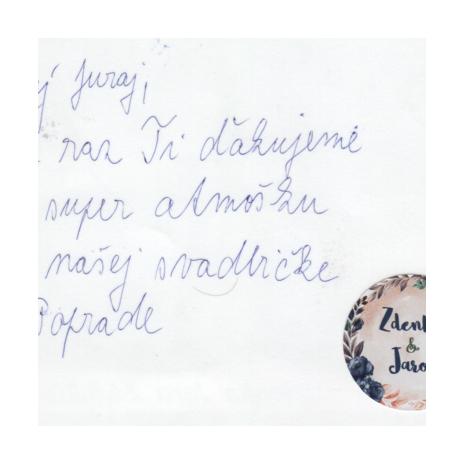 ý Juraj,
raz Ti ďakujeme
super atmošku
našej svadbičke
Poprade
Zdenk
&
Jaro